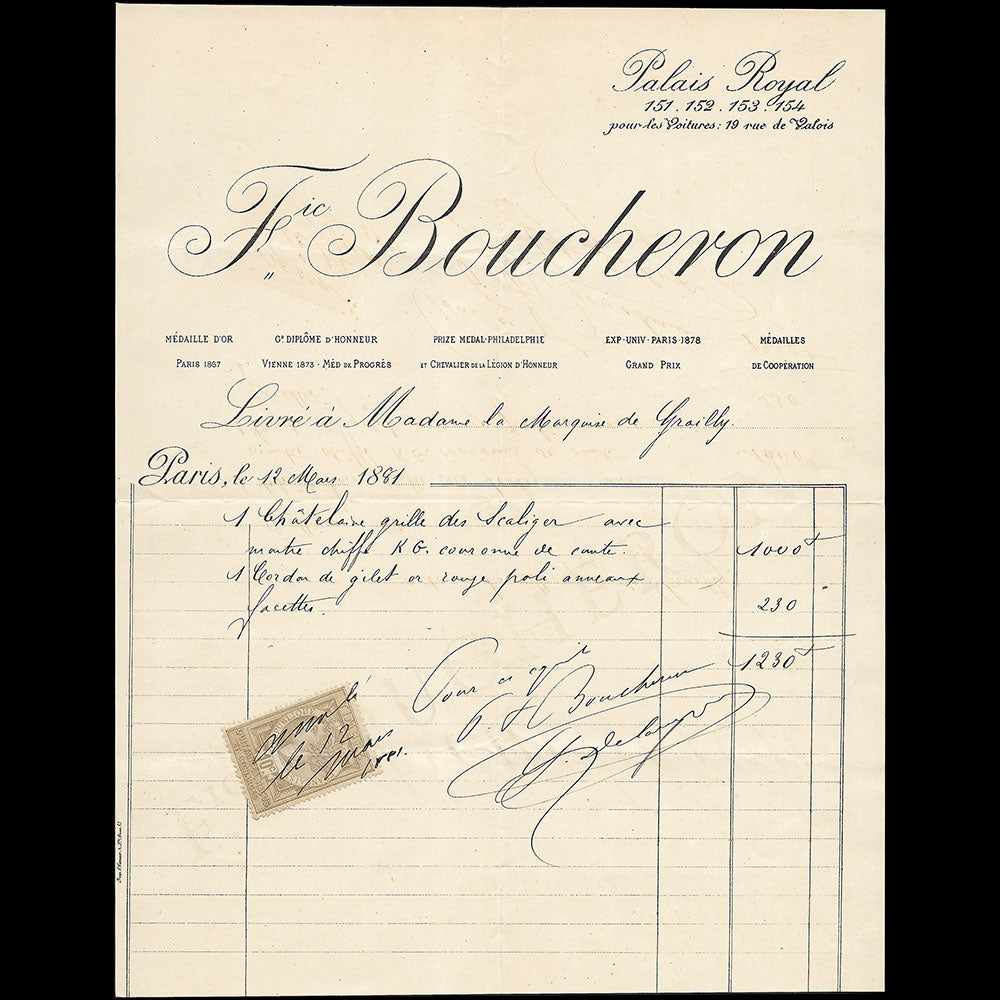 Palais Royal
151. 152. 153. 154
pour les Voitures: 19 rue de Valois
Fic Boucheron
MÉDAILLE D'OR
PARIS 1867
Gd DIPLÔME D'HONNEUR
VIENNE 1873 - MÉD DE PROGRÈS
PRIZE MEDAL-PHILADELPHIE
ET CHEVALIER DE LA LÉGION D'HONNEUR
EXP-UNIV-PARIS-1878
GRAND PRIX
MÉDAILLES
DE COOPÉRATION
Livré à Madame la Marquise de Grailly.
Paris, le 12 Mars 1881
1 Châtelaine grille des Scaliger avec
montre chiffre K G. couronne de comte. 1000 f
1 Cordon de gilet or rouge poli anneaux
facettes. 230
1230 f
Pour acquit
P. F. Boucheron
annulé
le 12
mars
1881.